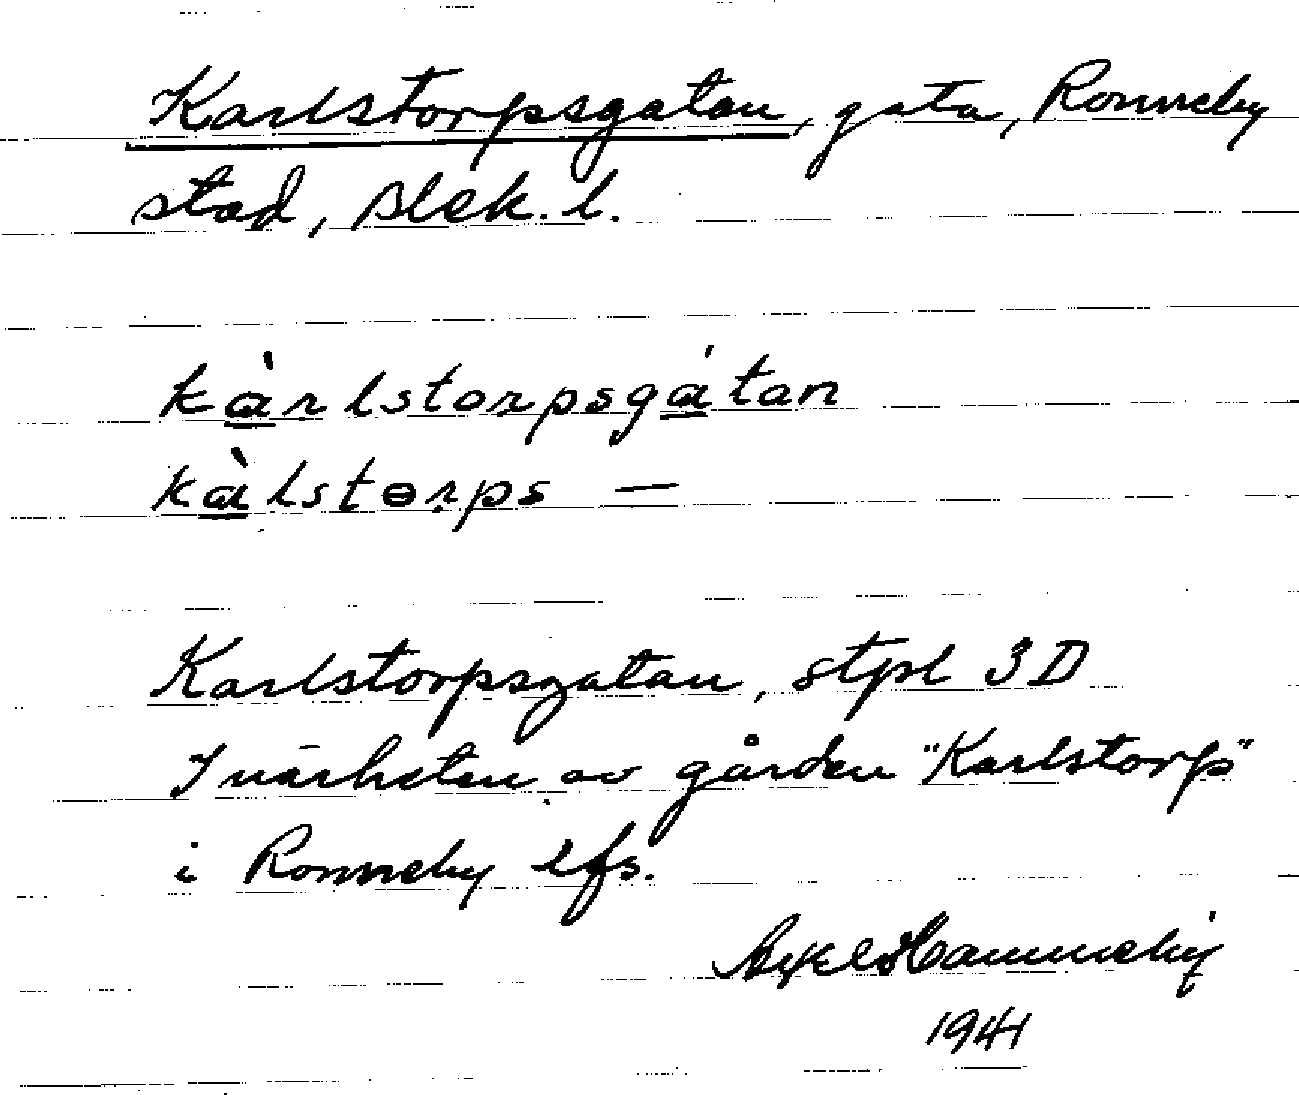 Karlstorpsgatan, gata, Ronneby
stad, Blek. l.
kàrlstorpsgátan
kàlstɵrps —
Karlstorpsgatan, stpl 3D
I närheten av gården "Karlstorp"
i Ronneby lfs.
Axel Hammeby
1941